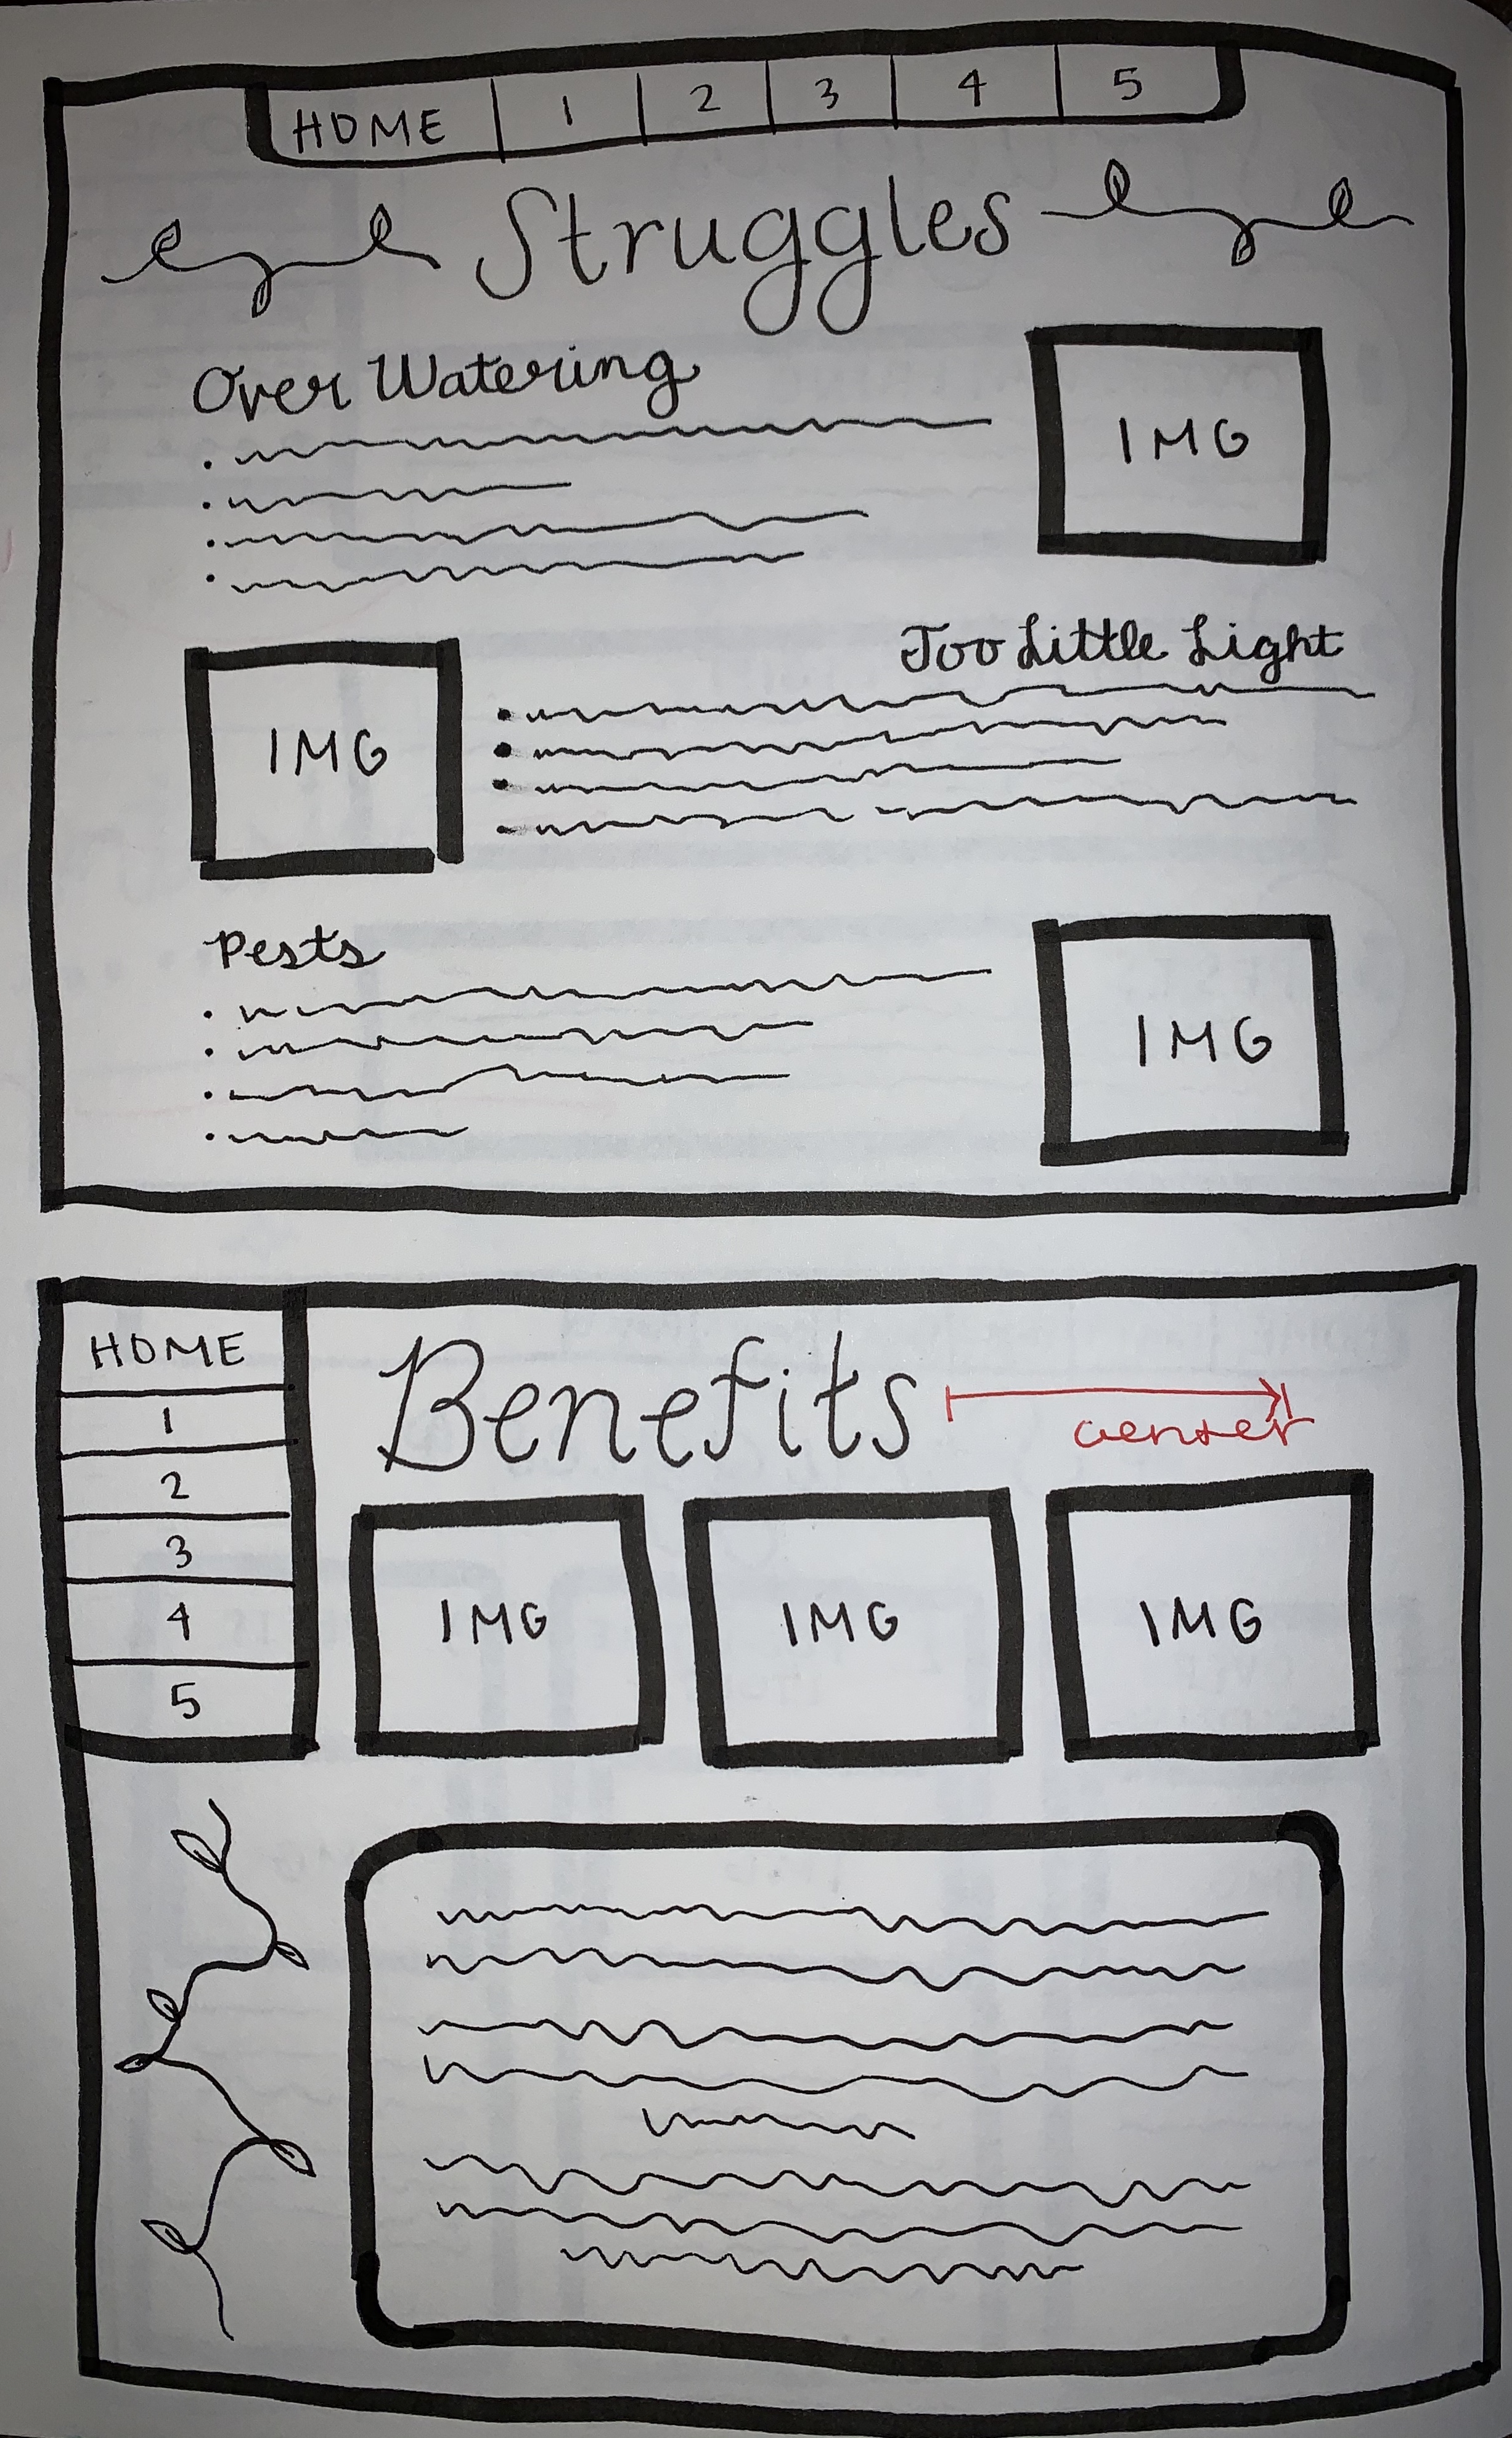 HOME 1 2 3 4 5
Struggles
Over Watering
IMG
Too Little Light
IMG
Pests
IMG
HOME
1
2
3
4
5
Benefits
center
IMG IMG IMG